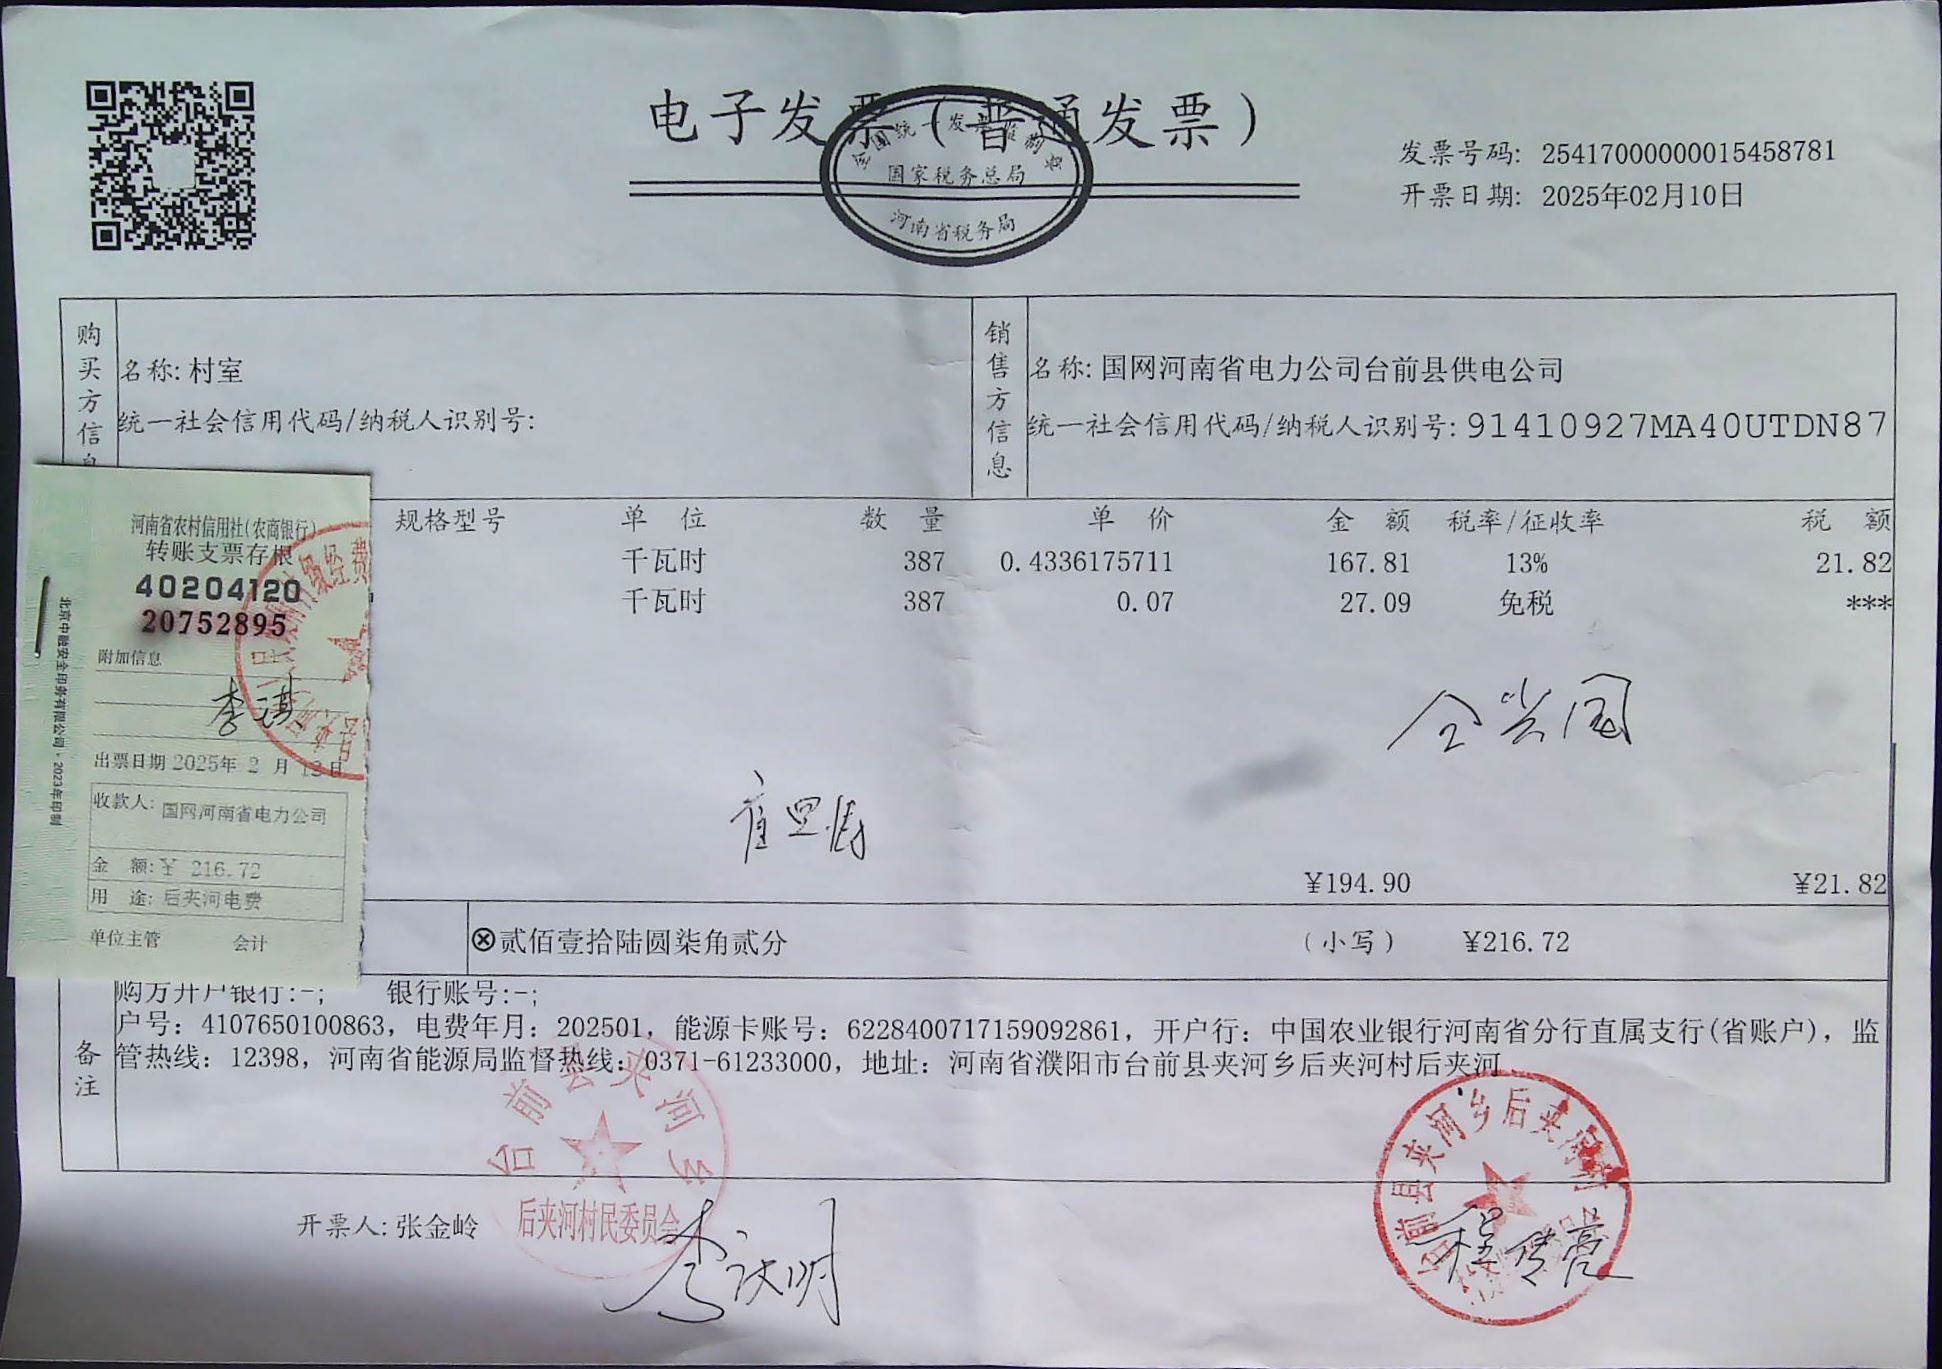 电子发票（普通发票）
全国统一发票监制章
国家税务总局
河南省税务局
发票号码: 25417000000015458781
开票日期: 2025年02月10日
购买方信息
名称: 村室
统一社会信用代码/纳税人识别号:
销售方信息
名称: 国网河南省电力公司台前县供电公司
统一社会信用代码/纳税人识别号: 91410927MA40UTDN87
规格型号 单 位 数 量 单 价 金 额 税率/征收率 税 额
千瓦时 387 0.4336175711 167.81 13% 21.82
千瓦时 387 0.07 27.09 免税 ***
河南省农村信用社(农商银行)
转账支票存根
40204120
20752895
附加信息
李淇
出票日期 2025年 2 月 12日
收款人: 国网河南省电力公司
金 额: ¥ 216.72
用 途: 后夹河电费
单位主管 会计
北京中融安全印务有限公司·2023年印制
仝兴国
¥194.90 ¥21.82
ⓧ贰佰壹拾陆圆柒角贰分 （小写） ¥216.72
备注
购方开户银行:-; 银行账号:-;
户号：4107650100863，电费年月：202501，能源卡账号：6228400717159092861，开户行：中国农业银行河南省分行直属支行(省账户)，监
管热线：12398，河南省能源局监督热线：0371-61233000，地址：河南省濮阳市台前县夹河乡后夹河村后夹河
台前县夹河乡
后夹河村民委员会
台前县夹河乡后夹河村
开票人: 张金岭